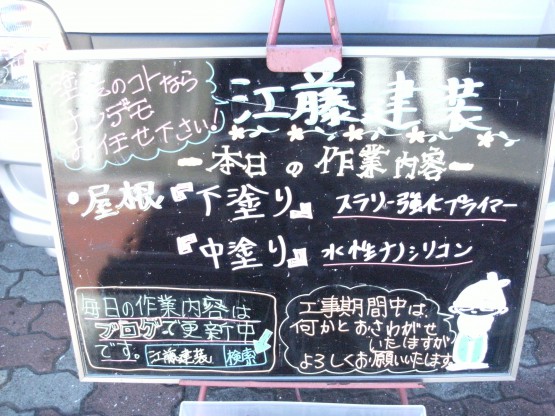 塗装のコトなら
ナンデモ
お任せ下さい!
江藤建装
本日の作業内容
・屋根『下塗り』 スラリー強化プライマー
『中塗り』 水性ナノシリコン
毎日の作業内容は
ブログで更新中
です。 江藤建装 検索
工事期間中は、
何かとおさわがせ
いたしますが
よろしくお願いいたします